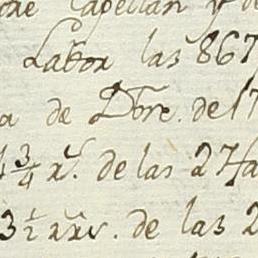 Capellan y de
Labor las 867
de Dbre. de 17
4 3/4 rs. de las 2 Ha
3 1/2 xxv. de las 2